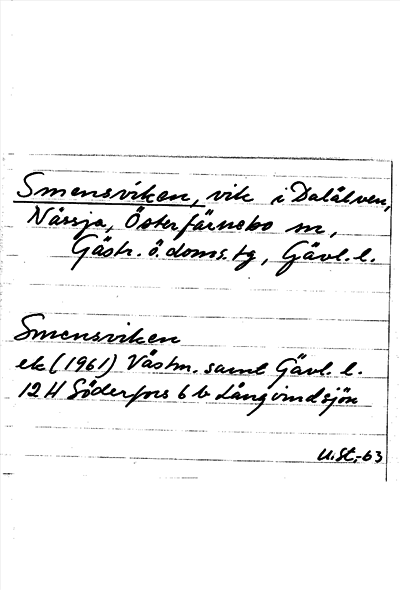 Smensviken, vik i Dalälven,
Nässja, Österfärnebo sn,
Gästr. ö. doms.tg, Gävl. l.
Smensviken
ek (1961) Västm. samt Gävl. l.
12 H Söderfors 6 b Långvindsjön
U.St.-63